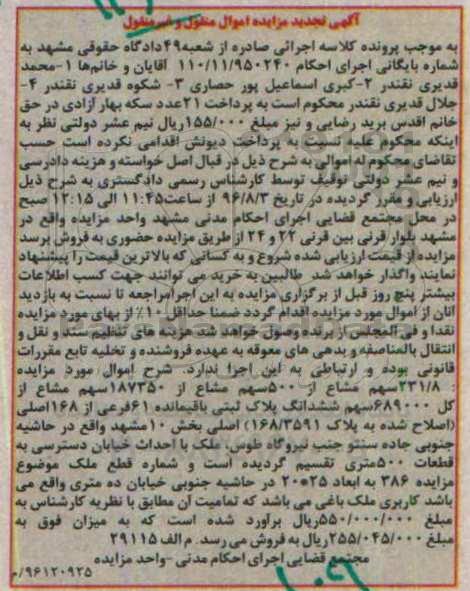 آگهی تجدید مزایده اموال منقول و غیرمنقول
به موجب پرونده کلاسه اجرائی صادره از شعبه۴۹دادگاه حقوقی مشهد به
شماره بایگانی اجرای احکام ۱۱۰/۱۱/۹۵۰۲۴۰ آقایان و خانم‌ها ۱-محمد
قدیری نقندر ۲-کبری اسماعیل پور حصاری ۳- شکوه قدیری نقندر ۴-
جلال قدیری نقندر محکوم است به پرداخت ۲۱عدد سکه بهار آزادی در حق
خانم اقدس برید رضایی و نیز مبلغ ۱۵۵/۰۰۰ریال نیم عشر دولتی نظر به
اینکه محکوم علیه نسبت به پرداخت دیونش اقدامی نکرده است حسب
تقاضای محکوم له اموالی به شرح ذیل در قبال اصل خواسته و هزینه دادرسی
و نیم عشر دولتی توقیف توسط کارشناس رسمی دادگستری به شرح ذیل
ارزیابی و مقرر گردیده در تاریخ ۹۶/۸/۳ از ساعت۱۱:۴۵ الی ۱۲:۱۵ صبح
در محل مجتمع قضایی اجرای احکام مدنی مشهد واحد مزایده واقع در
مشهد بلوار قرنی بین قرنی ۲۲ و ۲۴ از طریق مزایده حضوری به فروش برسد
مزایده از قیمت ارزیابی شده شروع و به کسانی که بالاترین قیمت را پیشنهاد
نمایند واگذار خواهد شد طالبین به خرید می توانند جهت کسب اطلاعات
بیشتر پنج روز قبل از برگزاری مزایده به این اجرامراجعه تا نسبت به بازدید
آنان از اموال مورد مزایده اقدام گردد ضمنا حداقل ۱۰٪ از بهای مورد مزایده
نقدا و فی المجلس از برنده وصول خواهد شد هزینه های تنظیم سند و نقل و
انتقال بالمناصفه و بدهی های معوقه به عهده فروشنده و تخلیه تابع مقررات
قانونی بوده و ارتباطی به این اجرا ندارد. شرح اموال مورد مزایده
: ۲۳۱/۸سهم مشاع از ۵۰۰سهم مشاع از ۱۸۷۳۵۰سهم مشاع از
کل ۶۸۹۰۰۰سهم ششدانگ پلاک ثبتی باقیمانده ۶۱فرعی از ۱۶۸اصلی
(اصلاح شده به پلاک ۱۶۸/۳۵۹۱) اصلی بخش ۱۰مشهد واقع در حاشیه
جنوبی جاده سنتو جنب نیروگاه طوس، ملک با احداث خیابان دسترسی به
قطعات ۵۰۰متری تقسیم گردیده است و شماره قطع ملک موضوع
مزایده ۳۸۶ به ابعاد ۲۵*۲۰ در حاشیه جنوبی خیابان ده متری واقع می
باشد کاربری ملک باغی می باشد که تمامیت آن مطابق با نظریه کارشناس به
مبلغ ۵۵۰/۰۰۰/۰۰۰ریال برآورد شده است که به میزان فوق به
مبلغ ۲۵۵/۰۴۵/۰۰۰ریال به فروش می رسد. م الف ۲۹۱۱۵
مجتمع قضایی اجرای احکام مدنی -واحد مزایده
/۹۶۱۲۰۹۲۵م